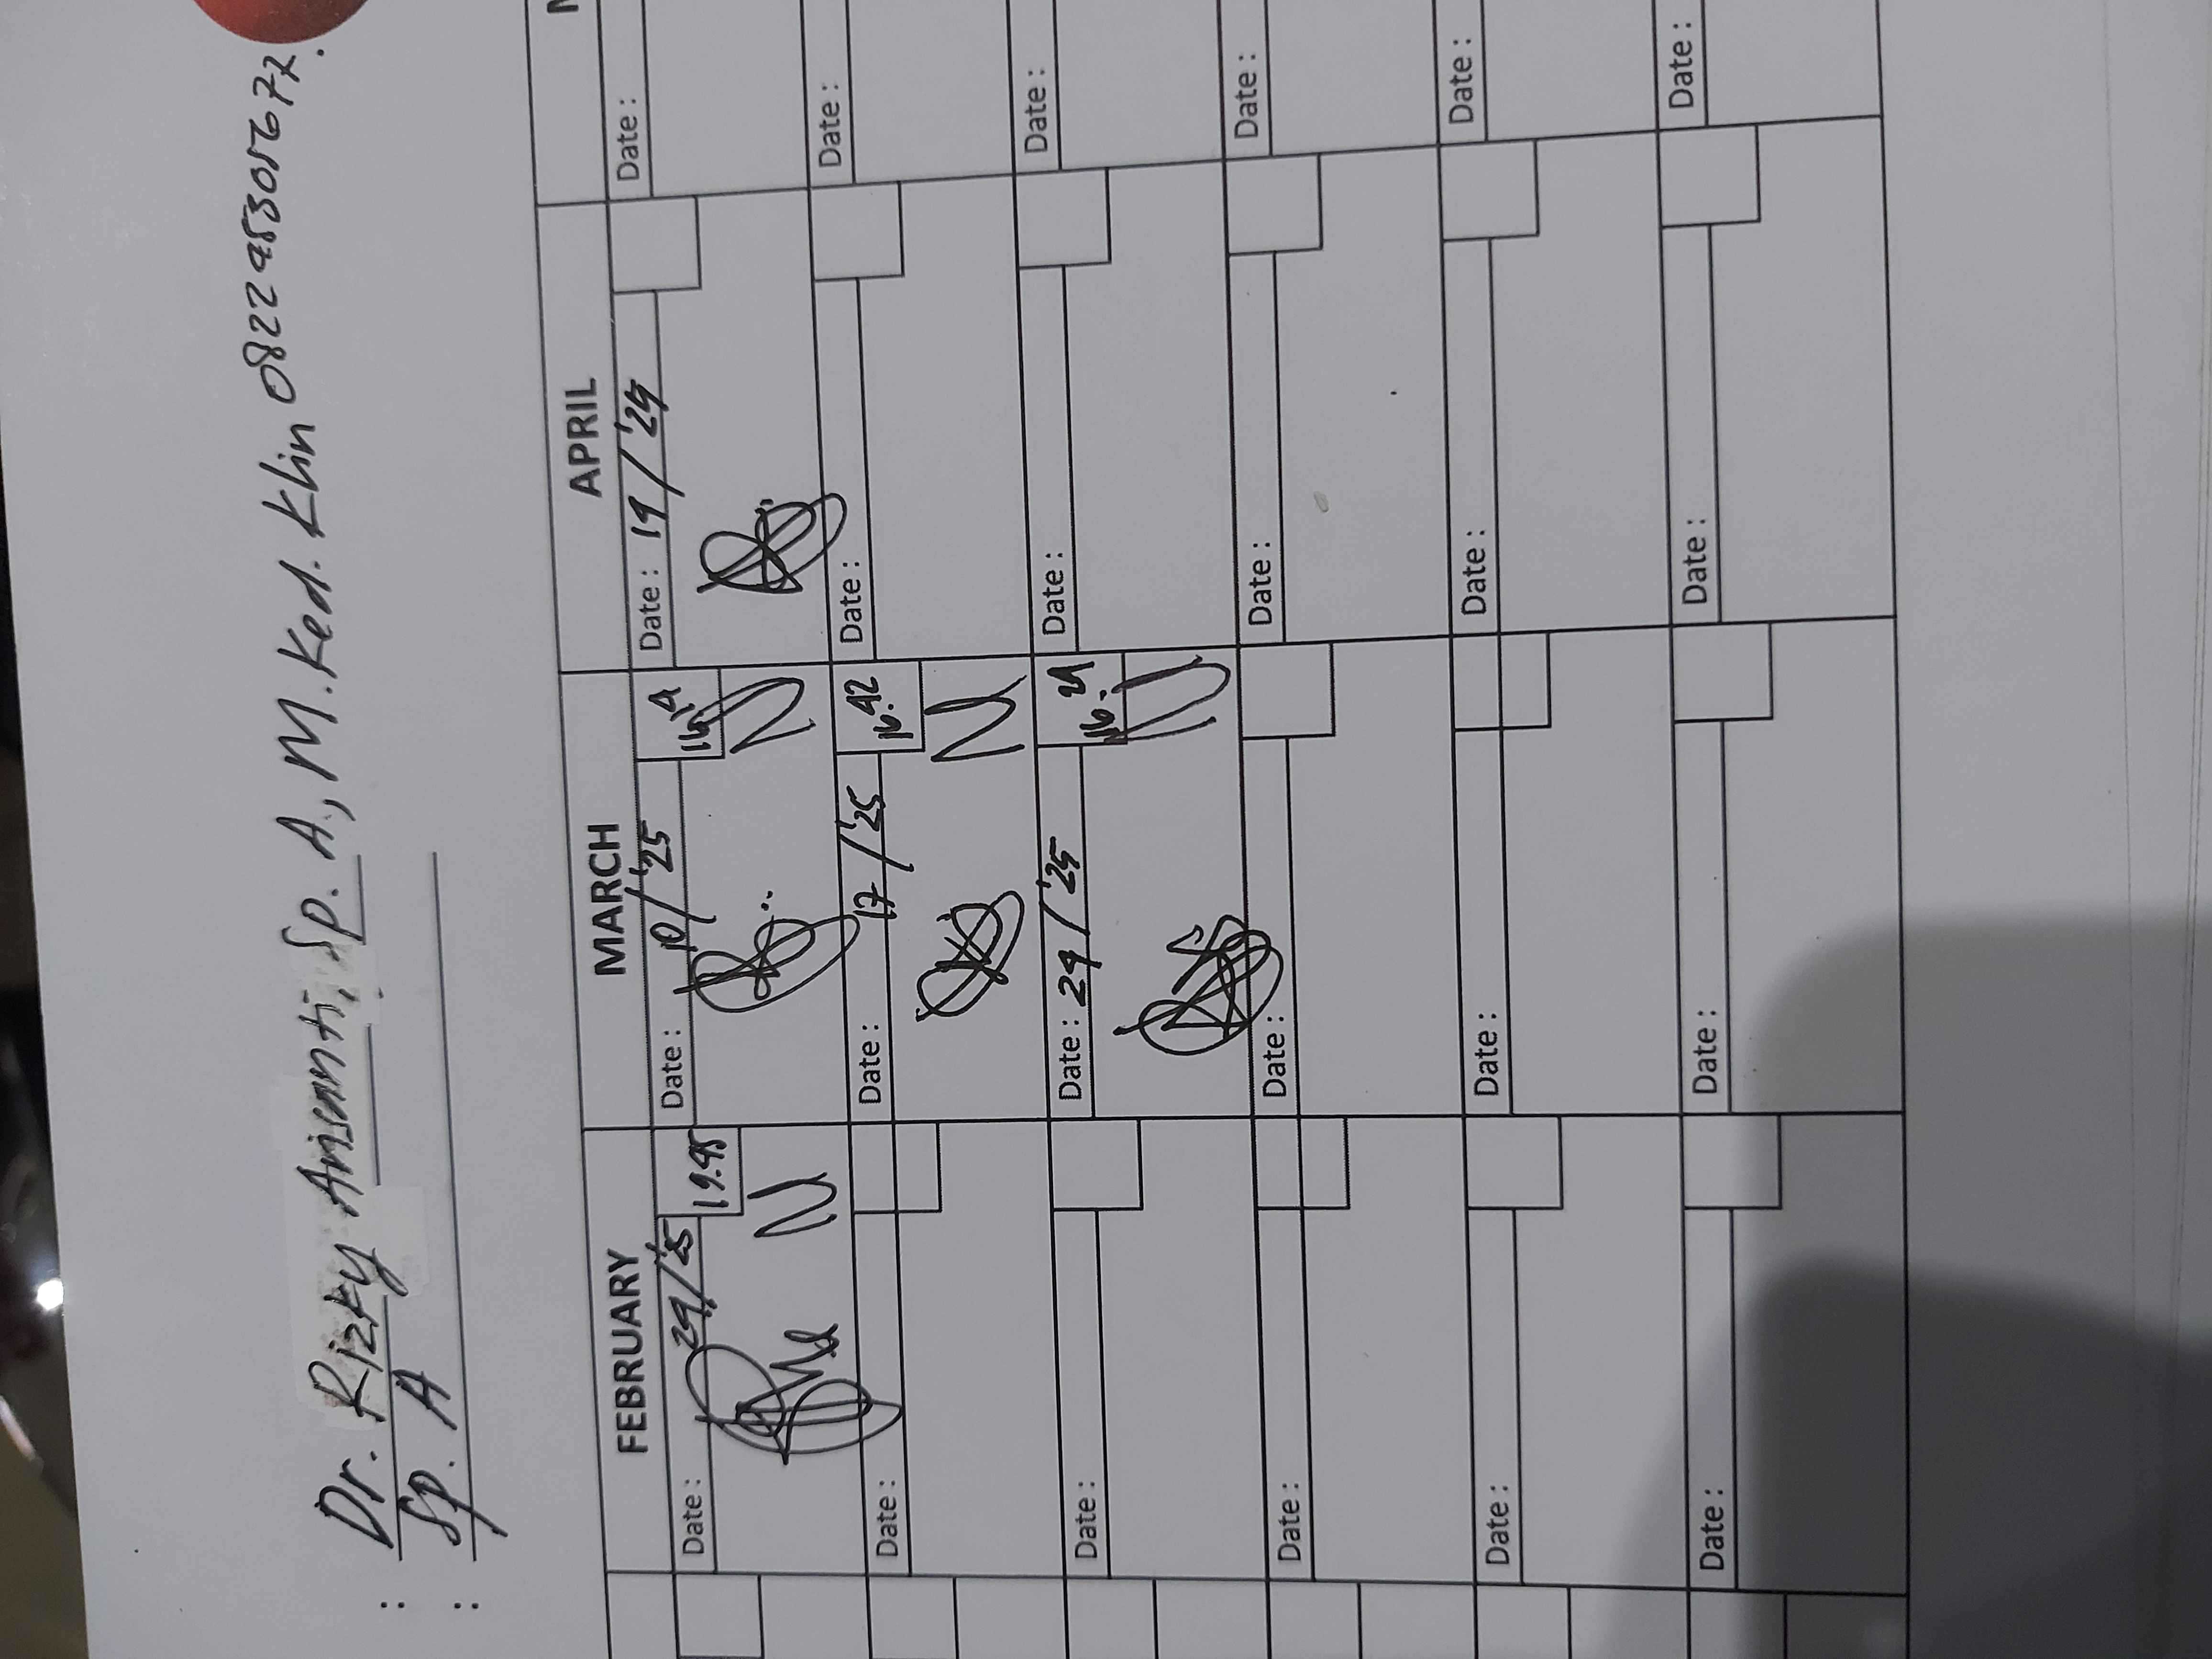 : Dr. Rizky Arisanti, Sp. A., M. Ked. Klin
: Sp. A
FEBRUARY MARCH APRIL
Date : 24/'25 Date : 10/'25 16.4 Date : 19/'24 Date :
Date : Date : 17/'25 16.42 Date : Date :
Date : Date : 24/'25 16.21 Date : Date :
Date : Date : Date : Date :
Date : Date : Date : Date :
Date : Date : Date : Date :